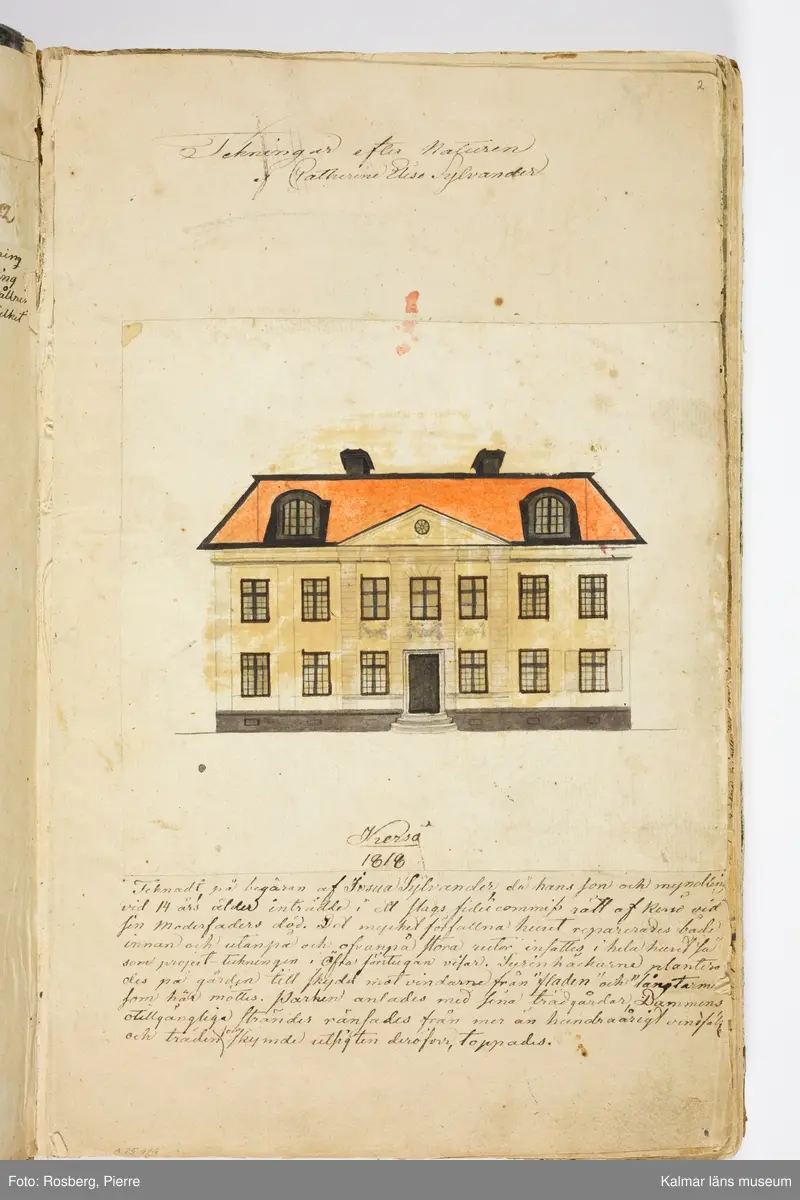 2
Tekningar efter Naturen
af Catherine Elise Sylvander
12
ning
ing
ållnis
ilket
Kerså
1818
Teknadt, på begäran af Josua Sylvander, då hans son och myndling
vid 14 års ålder inträdde i ett slags fideicommiss rätt af Kerse vid
sin Moderfaders död. Det mycket förfallna huset reparerades både
innan och utanpå och ofvanpå stora rutor insattes i hela huset så
som project tekningen i öfra fönstugan visar. Sirenhäckarne plantera
des på gården till skydd mot vindarne från "fladen" och "långtarme
som här möttes. Parken anlades med sina trädgårdar, Dammens
otillgängliga stränder ränsades från mer än hundraårigt vindfäll
och träden som skymde utsigten deröfver, toppades.
Foto: Rosberg, Pierre
Kalmar läns museum